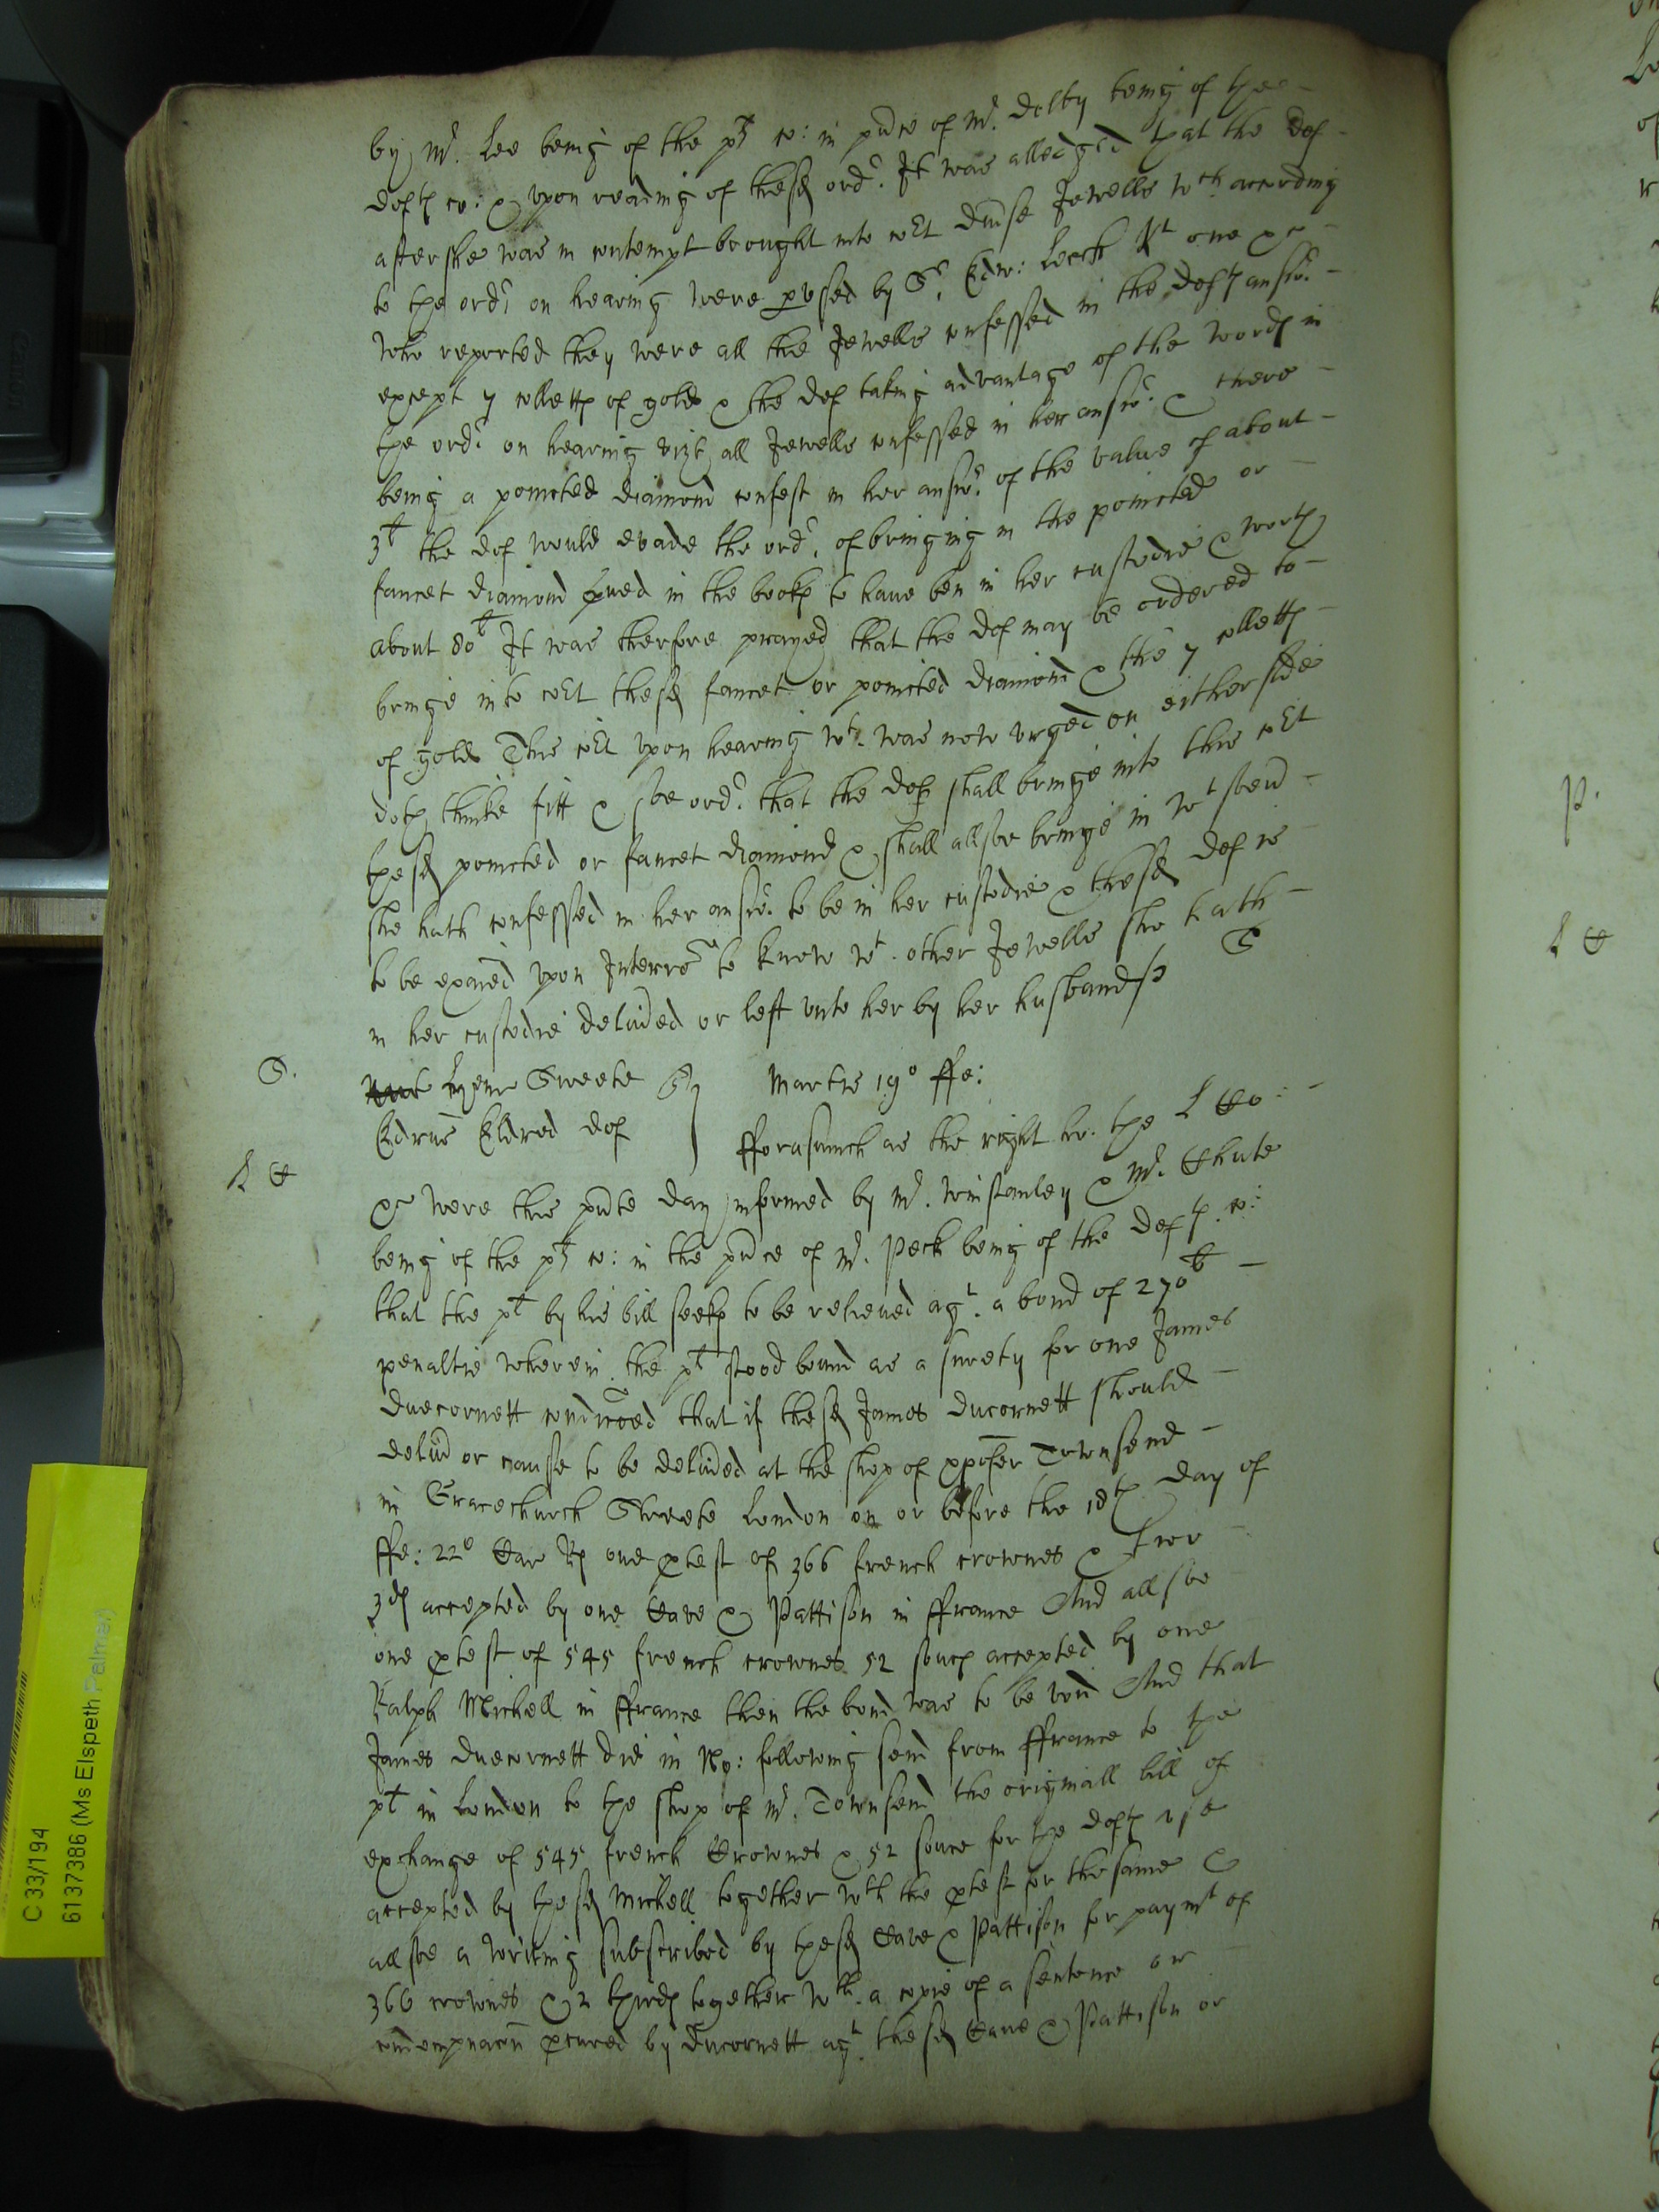 by Mr. Lee being of the plts co: in pñce of Mr. Dolby being of the
deftes co: & upon reading of the sd ordr. It was alledged that the def
after she was in contempt brought into cot diuse Jewells wch according
to the ordr on hearing were pused by Sr. Edw: Leech kt one &c
who reported they were all the Jewells confessed in the deftes answr.
except 7 colletts of gold & the def taking advantage of the words in
the ordr on hearing vizt all Jewells confessed in her answr. & there
being a pointed diamond confest in her answr. of the value of about
3l the def would evade the ordr. of bringing in the pointed or
fancet diamond pued in the bookes to haue ben in her custodie & worth
about 80l It was therfore prayed that the def may be ordered to
bringe into cot the sd fancet or pointed diamond & the 7 colletts
of gold This cot upon hearing wt. was now urged on either side
doth thinke fitt & soe ordr. that the def shall bringe into this cot
the sd pointed or fancet diamond & shall allsoe bringe in wt stend
she hath confessed in her answr. to be in her custodie & the sd def is
to be exaied upon Interrs to know wt. other Jewells she hath
in her custodie deliũed or left unto her by her husband
S.
Sweete
Martis 19o ffe:
Eldred def
fforasmuch as the right ho. the L Co:
L C
&c were this pñte day informed by Mr. Winstanley & Mr. Chute
being of the plts co: in the pñce of Mr. Peck being of the deftes co:
that the plt by his bill seekes to be releiued agt. a bond of 270l
penaltie wherein the plt stood bound as a surety for one James
Duecornett condicõed that if the sd James Ducornett should
deliũ or cause to be deliũed at the shop of xpofer Townsend
in Gracechurch Streete London on or before the 18th day of
ffe: 22o Car Rs one ptest of 366 french crownes & two
3ds accepted by one Cave & Pattison in ffrance And allsoe
one ptest of 545 french crownes 52 souces accepted by one
Ralph Michell in ffrance then the bond was to be void And that
James Duecornett did in Ap: following send from ffrance to the
plt in London to the shop of Mr. Townsend the originall bill of
exchange of 545 french Crownes & 52 souce for the deftes use
accepted by the sd Michell together wth the ptest for the same &
allsoe a writing subscribed by the sd Cave & Pattison for paymt of
366 crownes & 2 thirds together wth. a copie of a sentence or
condempnacõn pcured by Ducornett agt. the sd Caue & Pattison or
P.
L C
C 33/194
6137386 (Ms Elspeth Palmer)
Canon